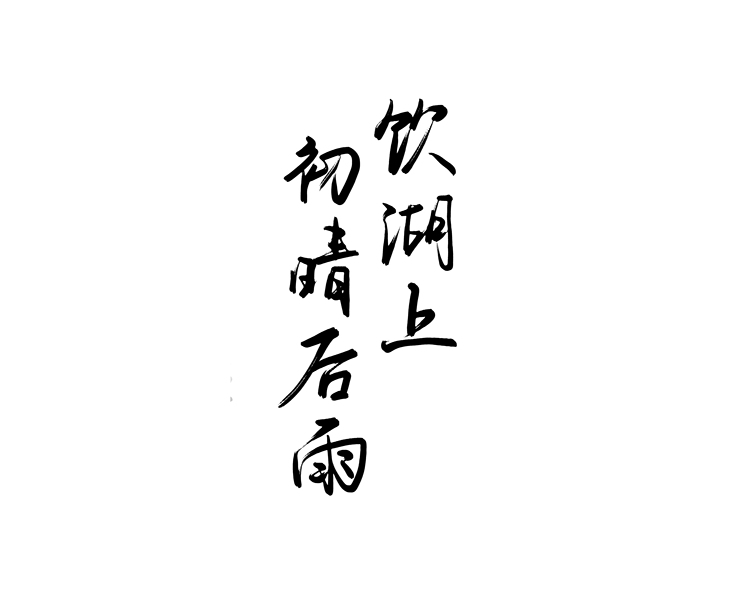 饮湖上
初晴后雨